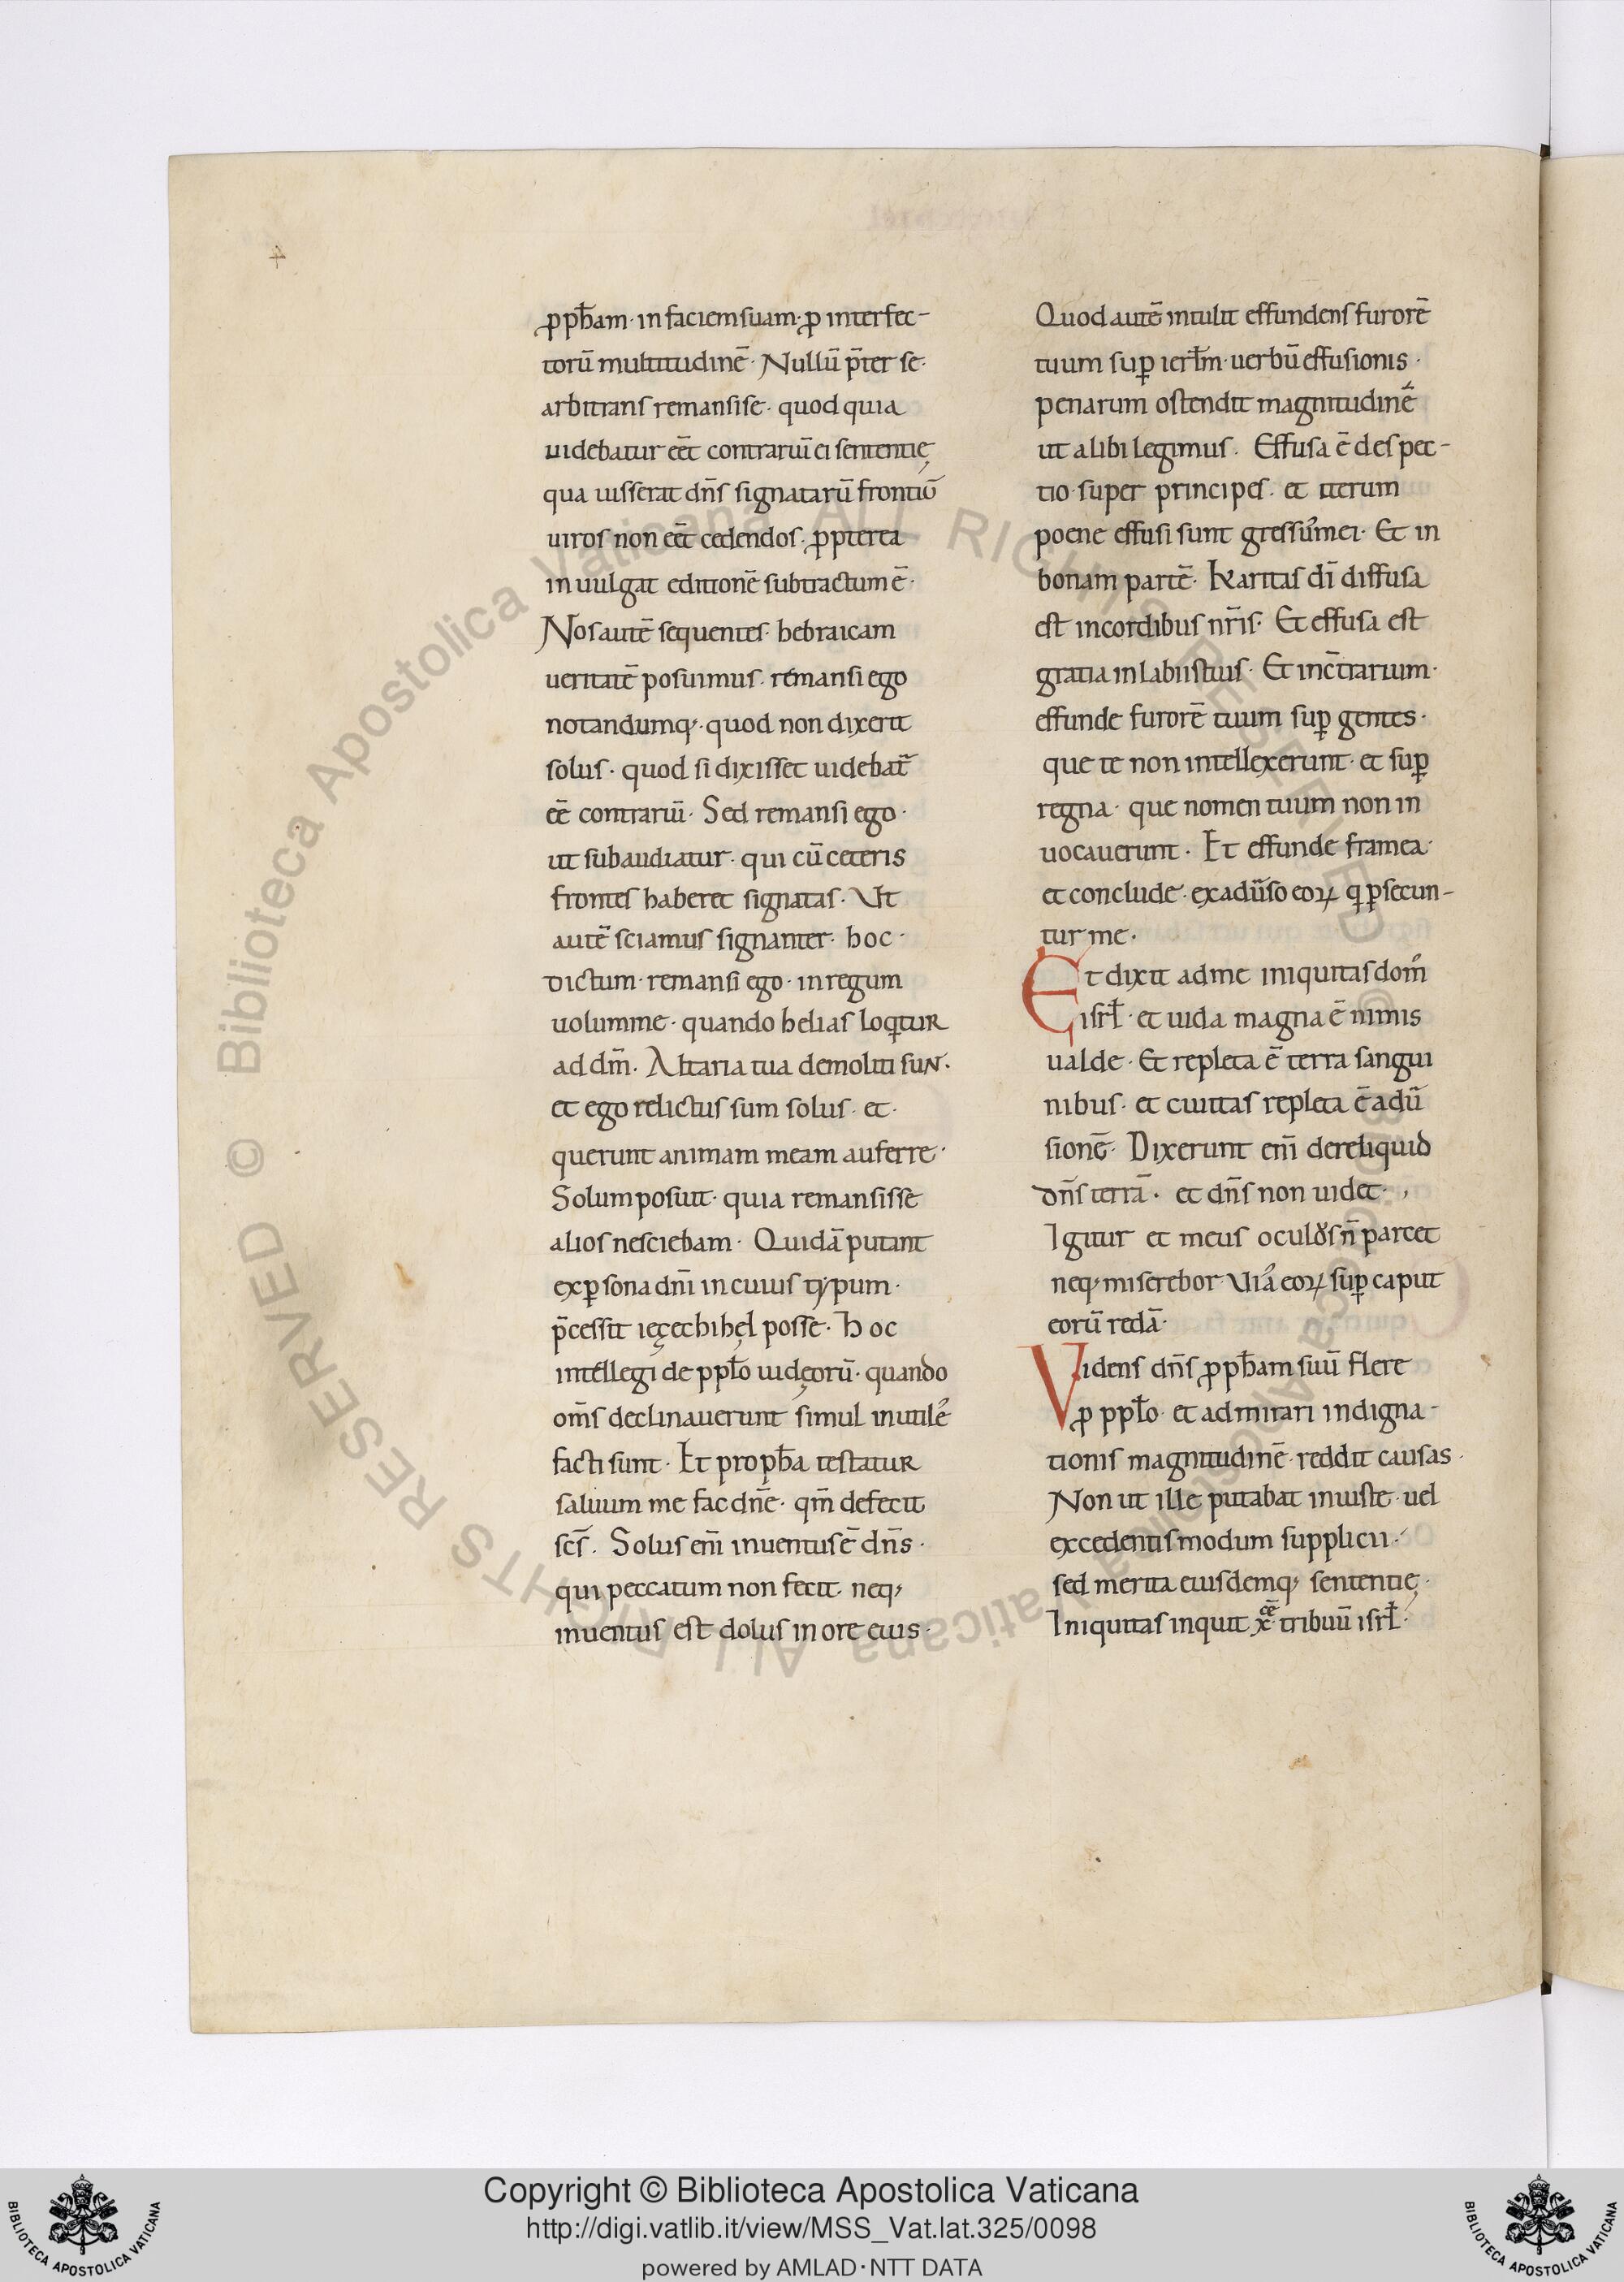 ꝓph̄am· in faciem suam· ꝓ interfec-
torū multitudinē· Nullū p̄ter se·
arbitrans remansise· quod quia
uidebatur eēt contrariū ei sententię
qua iusserat dn̄s signatarū frontiū
uiros non eēt cedendos· ꝓpterea
in uulgat editionē subtractum ē·
Nos autē sequentes· hebraicam
ueritatē posuimus· remansi ego
notandumq;· quod non dixerit
solus· quod si dixisset uidebat᷑
eē contrariū· Sed remansi ego·
ut subaudiatur· qui cū ceteris
frontes haberet signatas· Ut
autē sciamus signanter· hoc·
dictum· remansi ego· in regum
uolumine· quando helias loqtur
ad dm̄· Altaria tua demoliti suN·
et ego relictus sum solus· et·
querunt animam meam auferre·
Solum posuit· quia remansisse
alios nesciebam· Quidā putant
ex ꝑsona dn̄i in cuius typum·
p̄cessit ięzechihel posse· Hoc
intellegi de ppło iudęorū· quando
om̄s declinauerunt simul inutiles
facti sunt· Et proph̄a testatur
saluum me fac dn̄e· qm̄ defecit
sc̄s· Solus eni̅ inuentus ē dn̄s·
qui peccatum non fecit· neq;
inuentus est dolus in ore eius·
Quod autē intulit effundens furorē
tuum suꝑ ierl̄m· uerbū effusionis·
penarum ostendit magnitudinē
ut alibi legimus· Effusa ē despec-
tio· super principes· et iterum
poene effusi sunt gressus mei· Et in
bonam partē· Karitas dī diffusa
est in cordibus nr̄is· Et effusa est
gratia in labiis tuis· Et in c̄trarium·
effunde furorē tuum suꝑ gentes·
que te non intellexerunt· et suꝑ
regna· que nomen tuum non in
uocauerunt· Et effunde framea·
et conclude· ex adūso eoꝝ q ꝑsecun-
tur me·
Et dixit ad me iniquitas dom᷒
isrł· et iuda magna ē nimis
ualde· Et repleta ē terra sangui
nibus· et ciuitas repleta ē adū
sionē· Dixerunt eni̅ dereliquid
dn̄s terrā· et dn̄s non uidet·
Igitur et meus oculus n̄ parcet
neq; miserebor· Uiā eoꝝ suꝑ caput
eorū redā·
Videns dn̄s ꝓph̄am suū flere
ꝓ ppło· et admirari indigna-
tionis magnitudinē· reddit causas·
Non ut ille putabat iniuste· uel
excedentis modum supplicii·
sed merita eiusdemq; sententię·
Iniquitas inquit x· cē tribuū isrł·
Copyright © Biblioteca Apostolica Vaticana
http://digi.vatlib.it/view/MSS_Vat.lat.325/0098
powered by AMLAD·NTT DATA
© Biblioteca Apostolica Vaticana ALL RIGHTS RESERVED
© Biblioteca Apostolica Vaticana ALL RIGHTS RESERVED
BIBLIOTECA APOSTOLICA VATICANA
BIBLIOTECA APOSTOLICA VATICANA